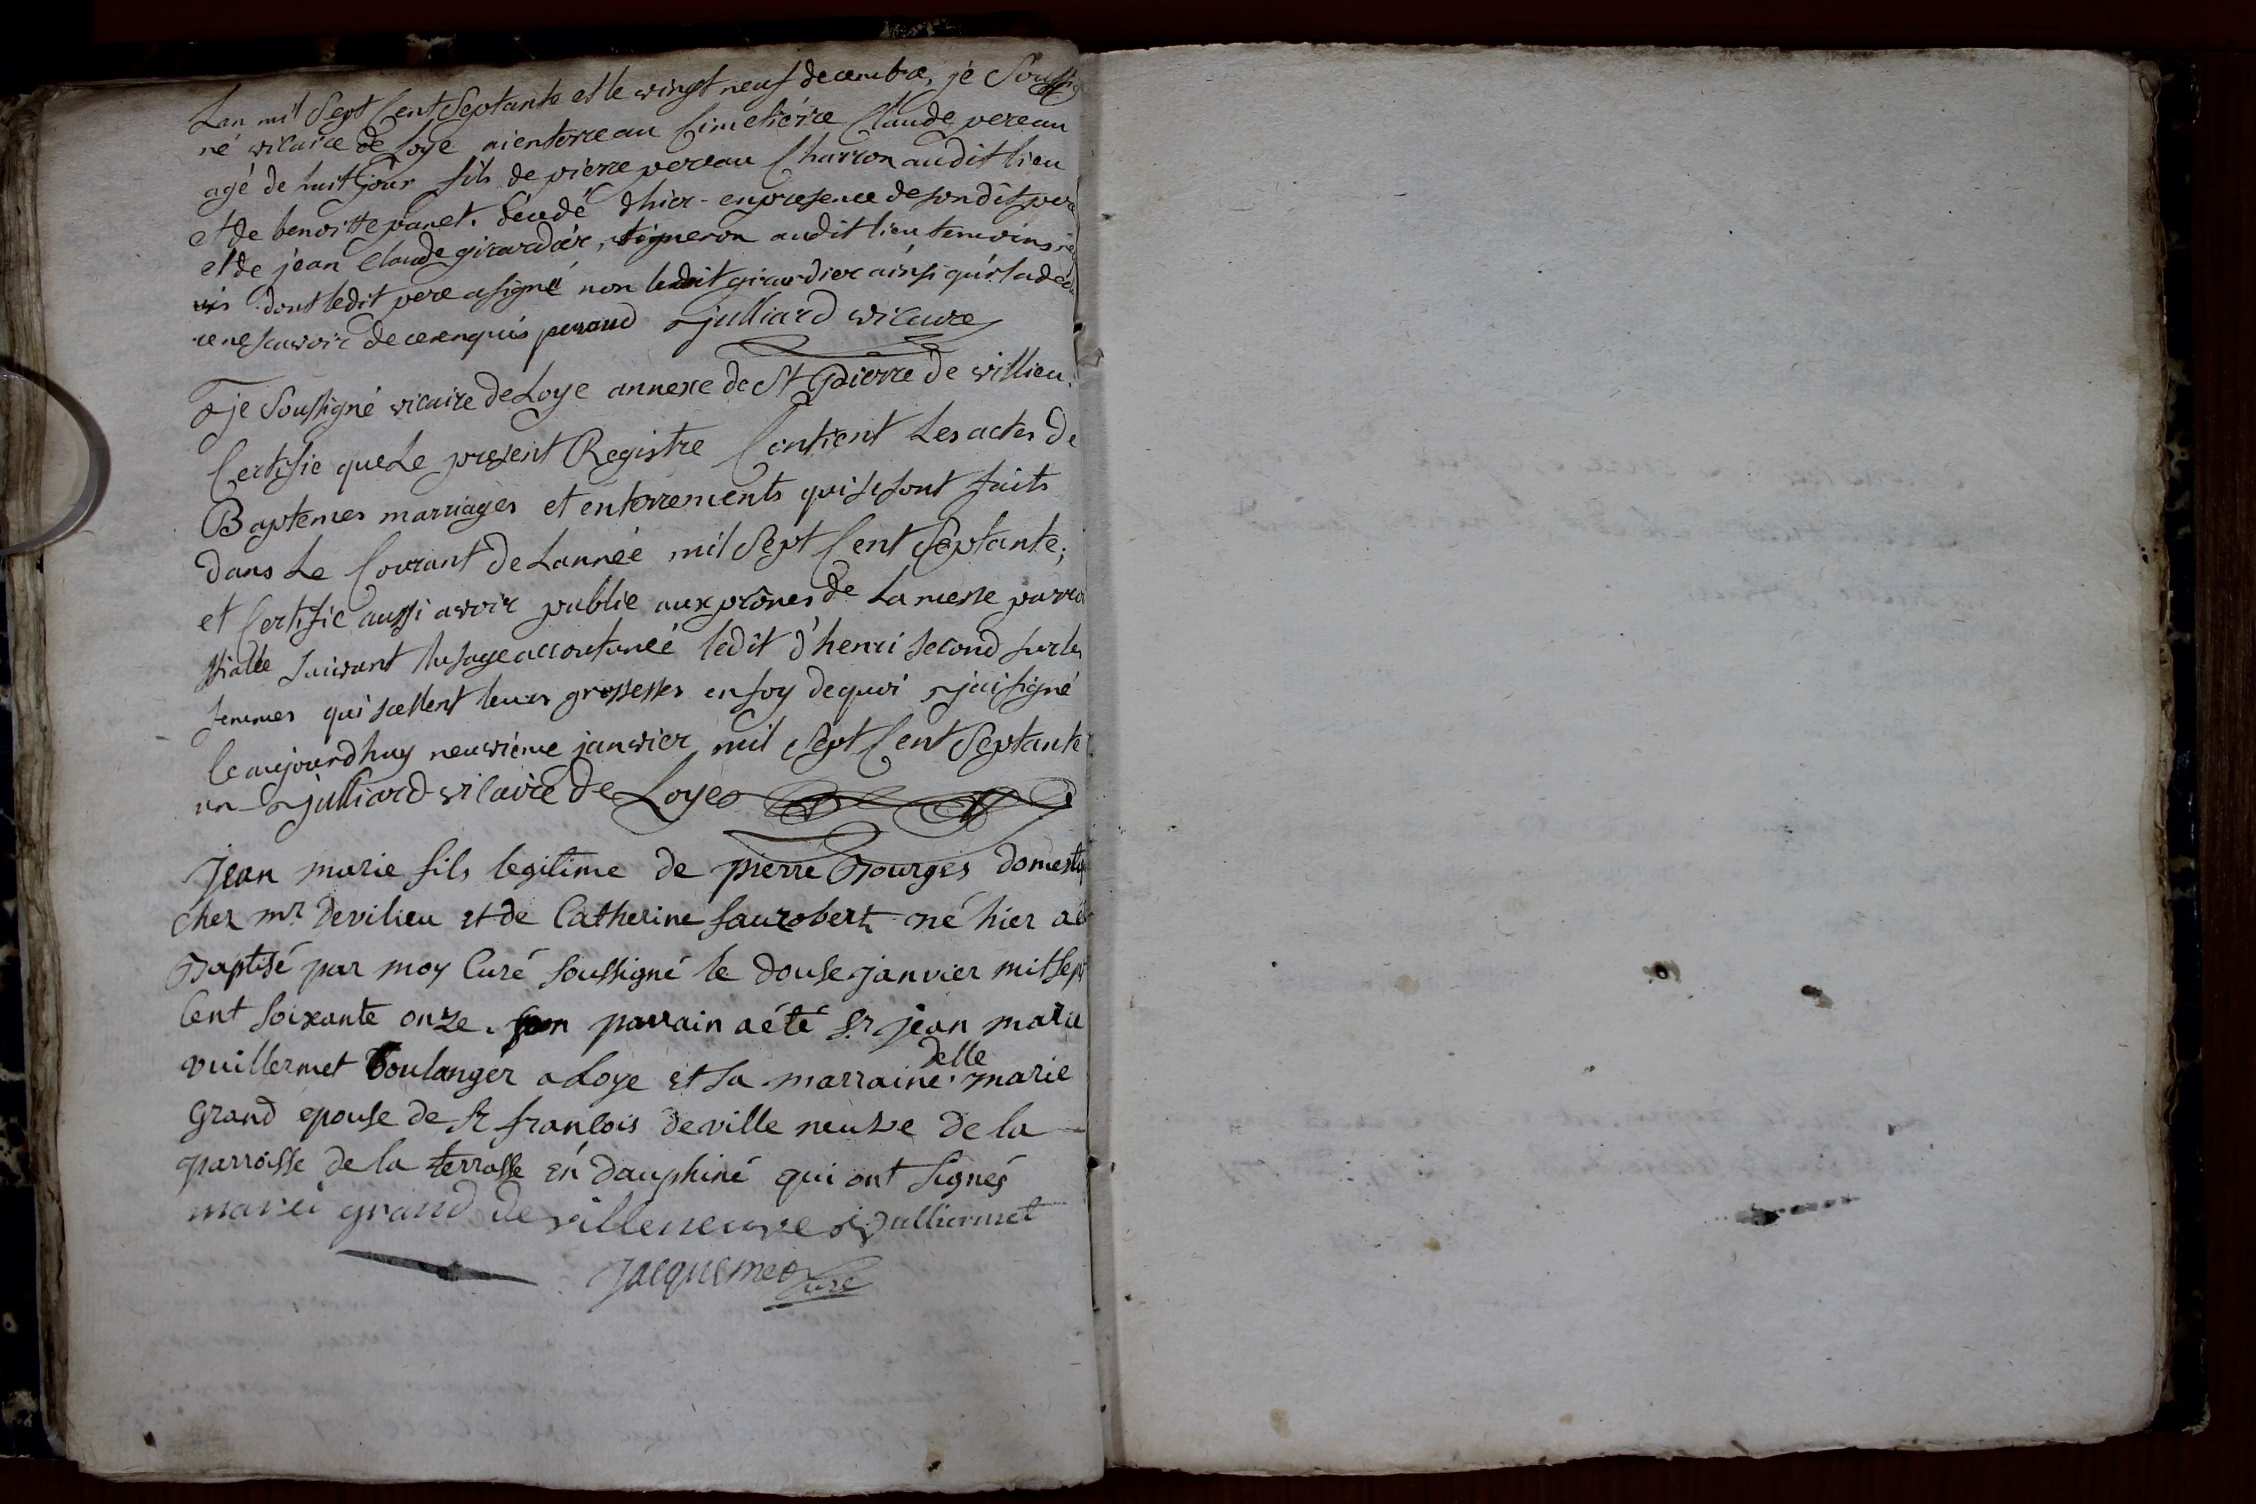 Lan mil Sept Cent Septante et le vingt neuf decembre, je Soussig
né vicaire de Loye ai enterre au Cimetiére Claude pereau
agé de huit jour fils de pierre pereau Charron audit lieu
et de benoitte panet. décedé dhier en presence de son dit pere
et de jéan Claude girardier, vigneron audit lieu temoins re
dont ledit pere a signé non ledit girardier ainsi qu'il a décla
re ne scavoir de ce enquis peraud Julliard vicaire
je Soussigné vicaire de Loye annexe de St Pierre de villieu.
Certifie que Le present Registre Contient Les actes de
Baptemes marriages et enterrements qui se sont faits
dans Le Courant de Lannée mil Sept Cent Septante;
et Certifie aussi avoir publie aux prônes de La messe parroi
ssialle suivant lusage accoutumée ledit d'henri second sur les
femmes qui scellent leurs grossesses en foy dequoi j'ai signé
le aujourdhuy neuvième janvier mil Sept Cent Septante
un Julliard vicaire de Loye
jean marie fils legitime de pierre Bourges domestiq
chez mr. devilieu et de Catherine faurobert né hier a é
Baptisé par moy Curé soussigné le douse janvier mil sept
Cent soixante onze. son parrain a été Sr. jean marie
vuillermet boulanger a Loye et sa marraine delle marie
Grand epouse de Sr francois de ville neuve de la
parroisse de la terrasse en dauphiné qui ont signés
marei grand de villeneuve j vulliermet
jacquemet Curé